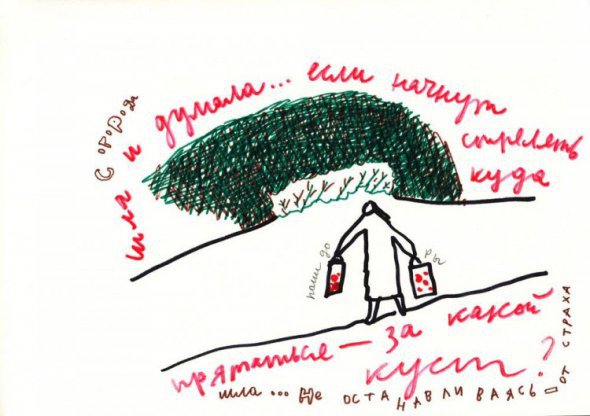 С ОГОРОДА
шла и думала... если начнут
стрелять
куда
поми до
ры
прятаться — за какой
куст?
шла... НЕ ОСТАНАВЛИВАЯСЬ — ОТ СТРАХА